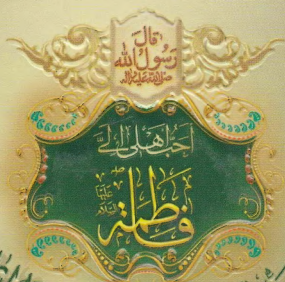 قال
رسول الله
صلی الله علیه و آله
احب اهلی الی
فاطمة